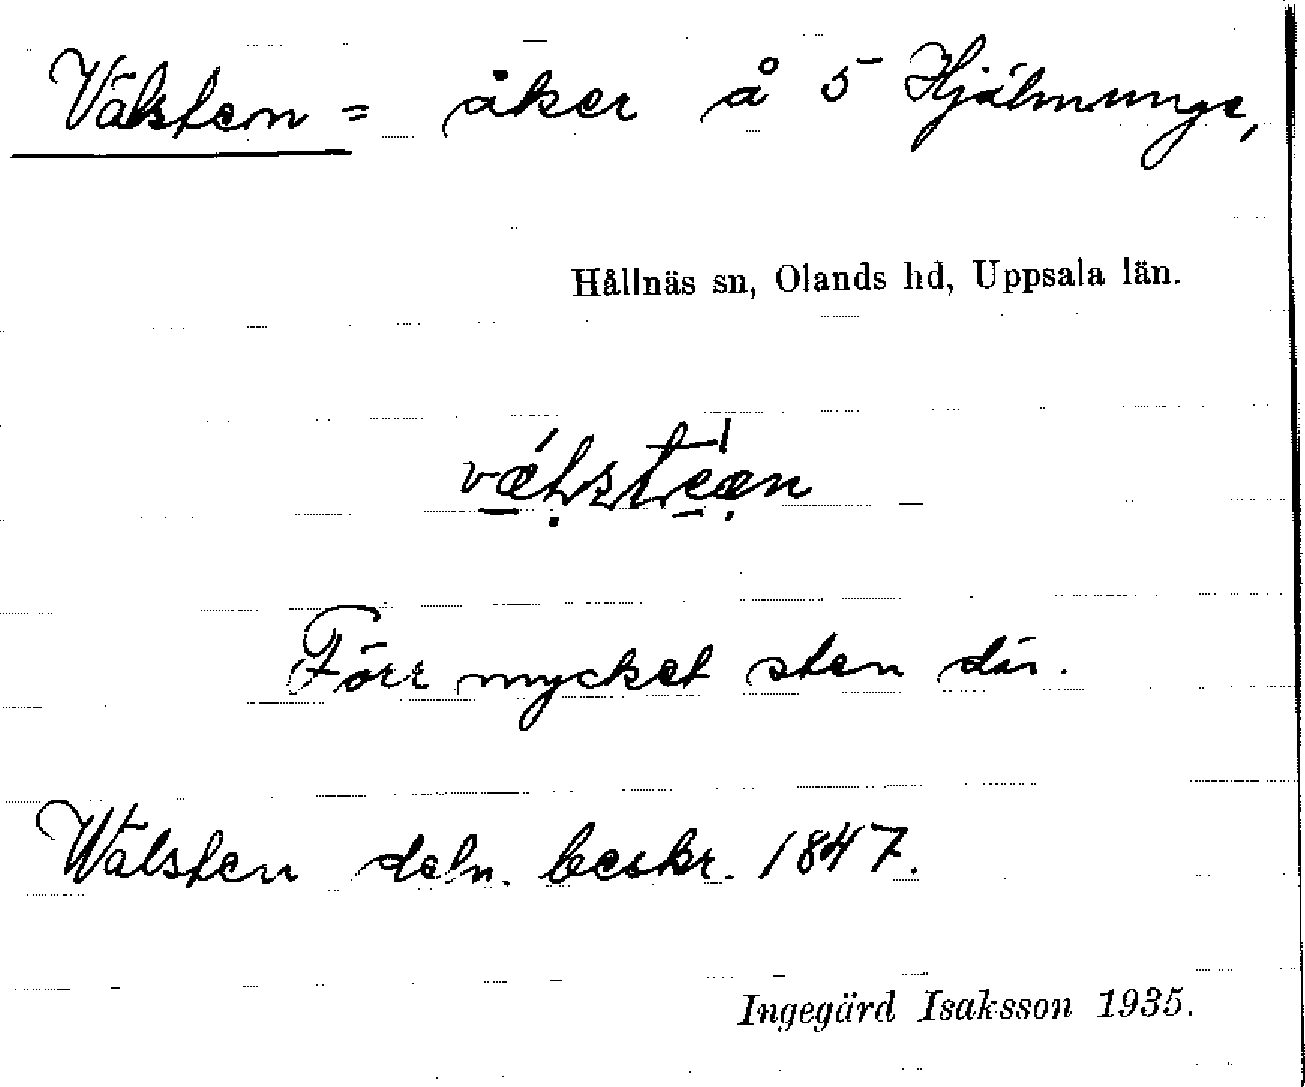 Välsten = åker å 5 Hjälmunge,
Hållnäs sn, Olands hd, Uppsala län.
Förr mycket sten där.
Wälsten deln. beskr. 1847.
Ingegärd Isaksson 1935.